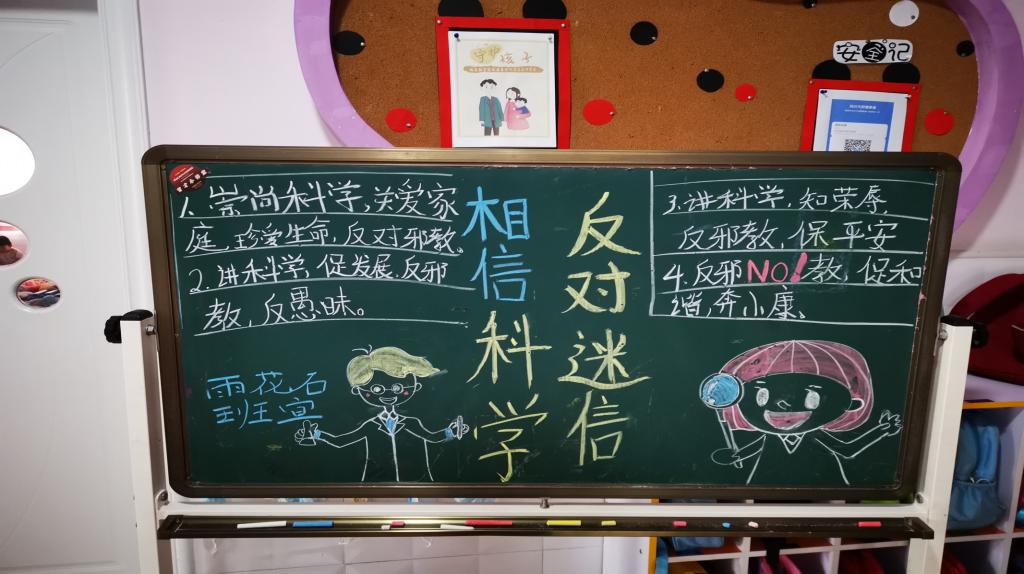 守护孩子
安全记
1、崇尚科学,关爱家
庭,珍爱生命,反对邪教。
2、讲科学,促发展,反邪
教,反愚昧。
相信科学
反对迷信
3.讲科学,知荣辱,
反邪教,保平安
4.反邪NO!教,促和
谐,奔小康、
雨花石
班宣